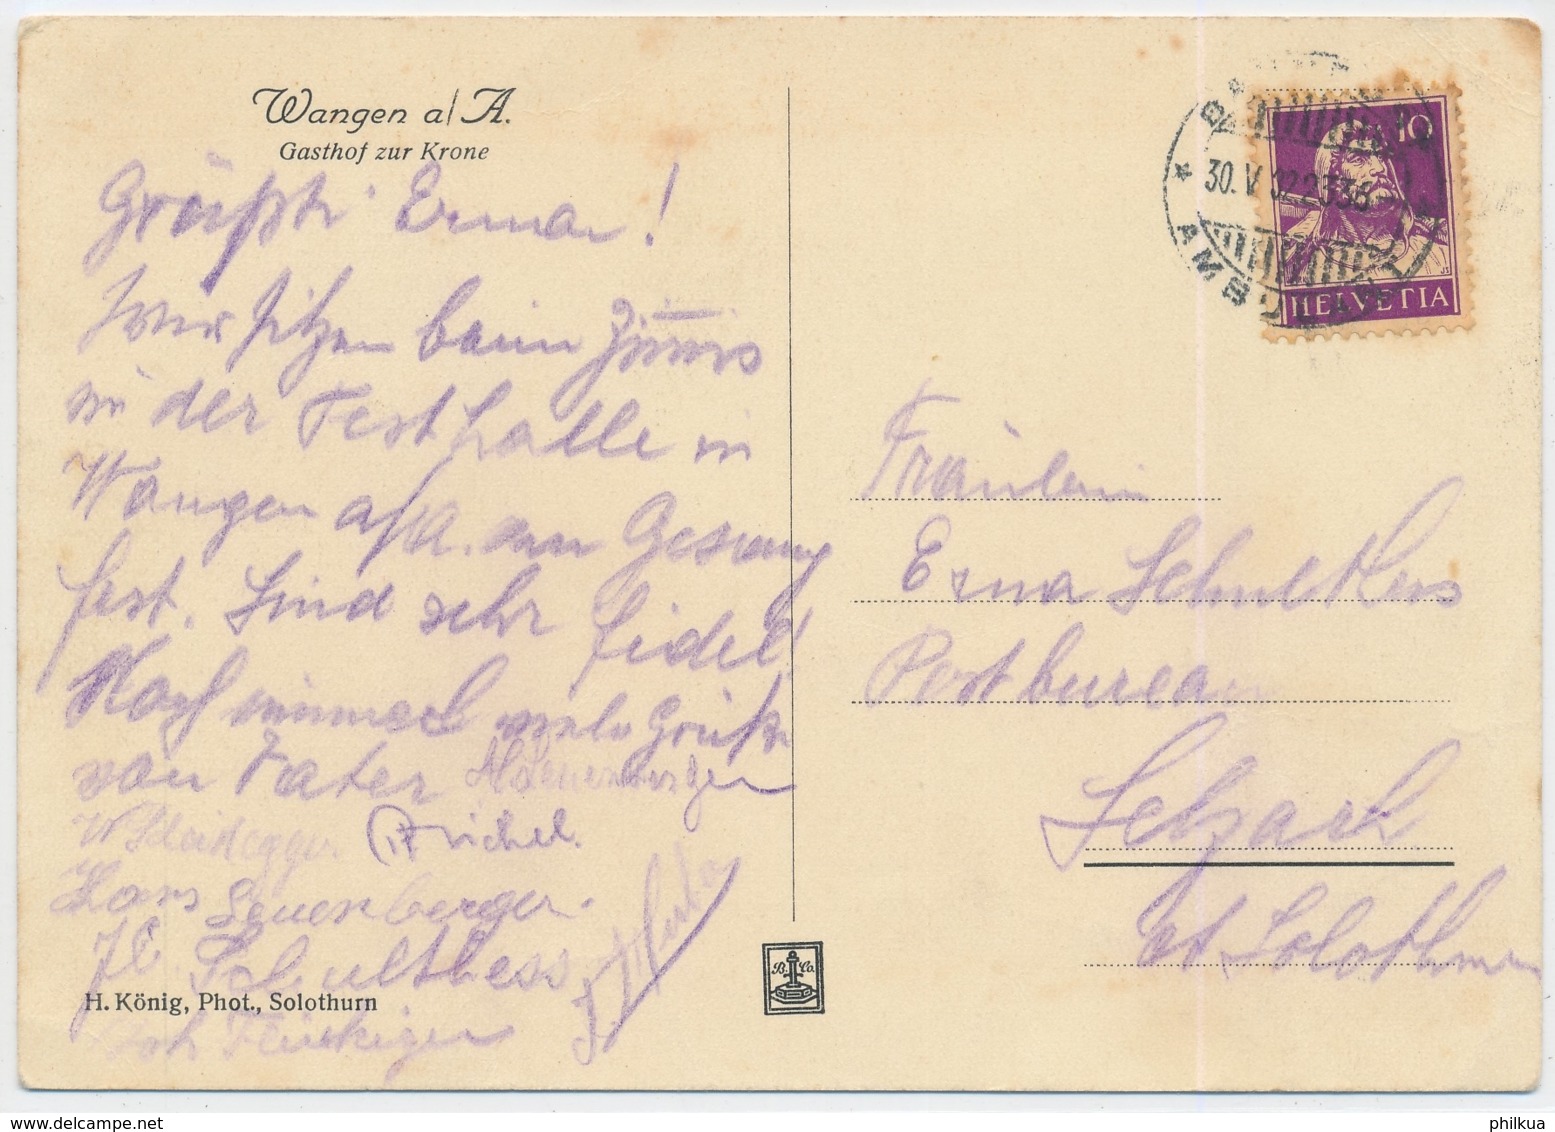 Wangen a/A.
Gasthof zur Krone
Wir sitzen beim Zimmis
in der Festhalle in
Wangen a/A. am Gesang
fest. Sind sehr fidel!
Noch einmal viele Grüsse
von Vater
W Scheidegger
Hans Leuenberger.
Schulthess
Flückiger
H. König, Phot., Solothurn
B. Co.
30. V. 32. 23
AMBULANT
10
HELVETIA
Fräulein
Erna Schulthess
Postbureau
Selzach
Kt. Solothurn
philkua